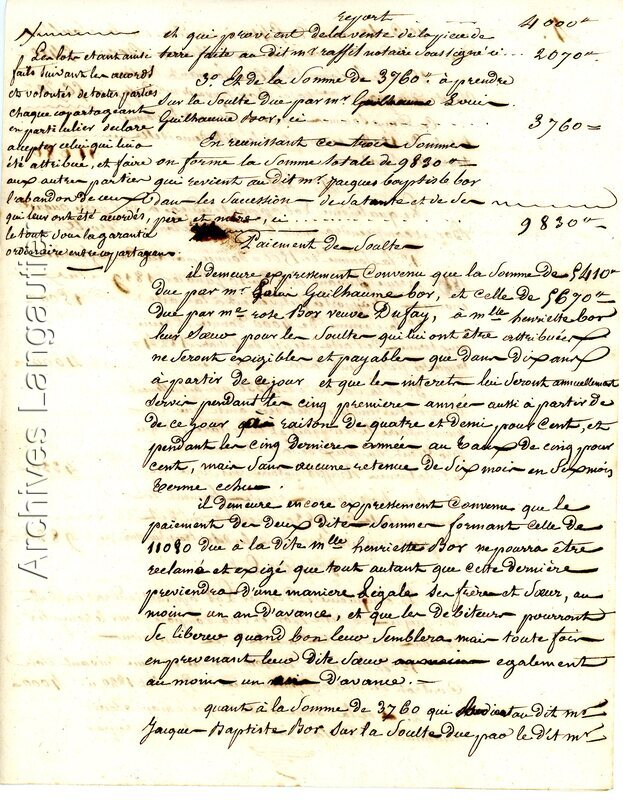 report 4000 "
et qui provient de la vente de la pièce de
terre faite au dit mr raffit notaire soussigné ci ... 2070 "
3o. Et de la Somme de 3760 " à prendre
Sur la Soulte due par mr. Guilhaume Louis
Guilhaume Bor, ci ........ 3760 =
En reunissant ce trois Sommes
on forme la Somme totale de 9830 "
qui revient au dit mr. Jacques baptiste bor
dans les Succession de Sa tante et de Ses
pere et mère, ci ............ 9830 "
Les lots etant ainsi
faits Suivant les accords
et volontés de toutes parties
chaque copartageant
en particulier declare
accepter celui qui lui a
été attribué, et faire
aux autres parties
l'abandon de ceux
qui leur ont été accordés,
le tout Sous la garantie
ordinaire entre copartageans.
Paiement de Soulte
il demeure expressement Convenu que la Somme de 5410 "
due par mr. Guilhaume bor, et celle de 5670 "
due par me rose Bor veuve Dufay, à mlle henriette bor
leur Sœur pour les Soultes qui lui ont être attribuées
ne Seront exigibles et payables que dans dix ans
à partir de ce jour et que les interets lui Seront annuellement
Servis pendant les cinq premieres année aussi à partir de
de ce jour à raison de quatre et demi pour cent, et
pendant les cinq dernieres années au taux de cinq pour
cent, mais Sans aucune retenue de Six mois en Six mois
terme echu.
il demeure encore expressement Convenu que le
paiement des deux dites Sommes formant celle de
11080 due à la dite mlle henriette Bor ne pourra être
reclamé et exigé que tout autant que cette dernière
previendra d'une maniere Légale Ses frère et Sœur, au
moins un an d'avance, et que les debiteurs pourront
Se liberer quand bon leur Semblera mais toute fois
en prevenant leur dite Sœur egalement
au moins un d'avance. —
quant à la Somme de 3760 qui au dit mr.
Jacques Baptiste Bor Sur la Soulte due par le dit mr
Archives Langautier